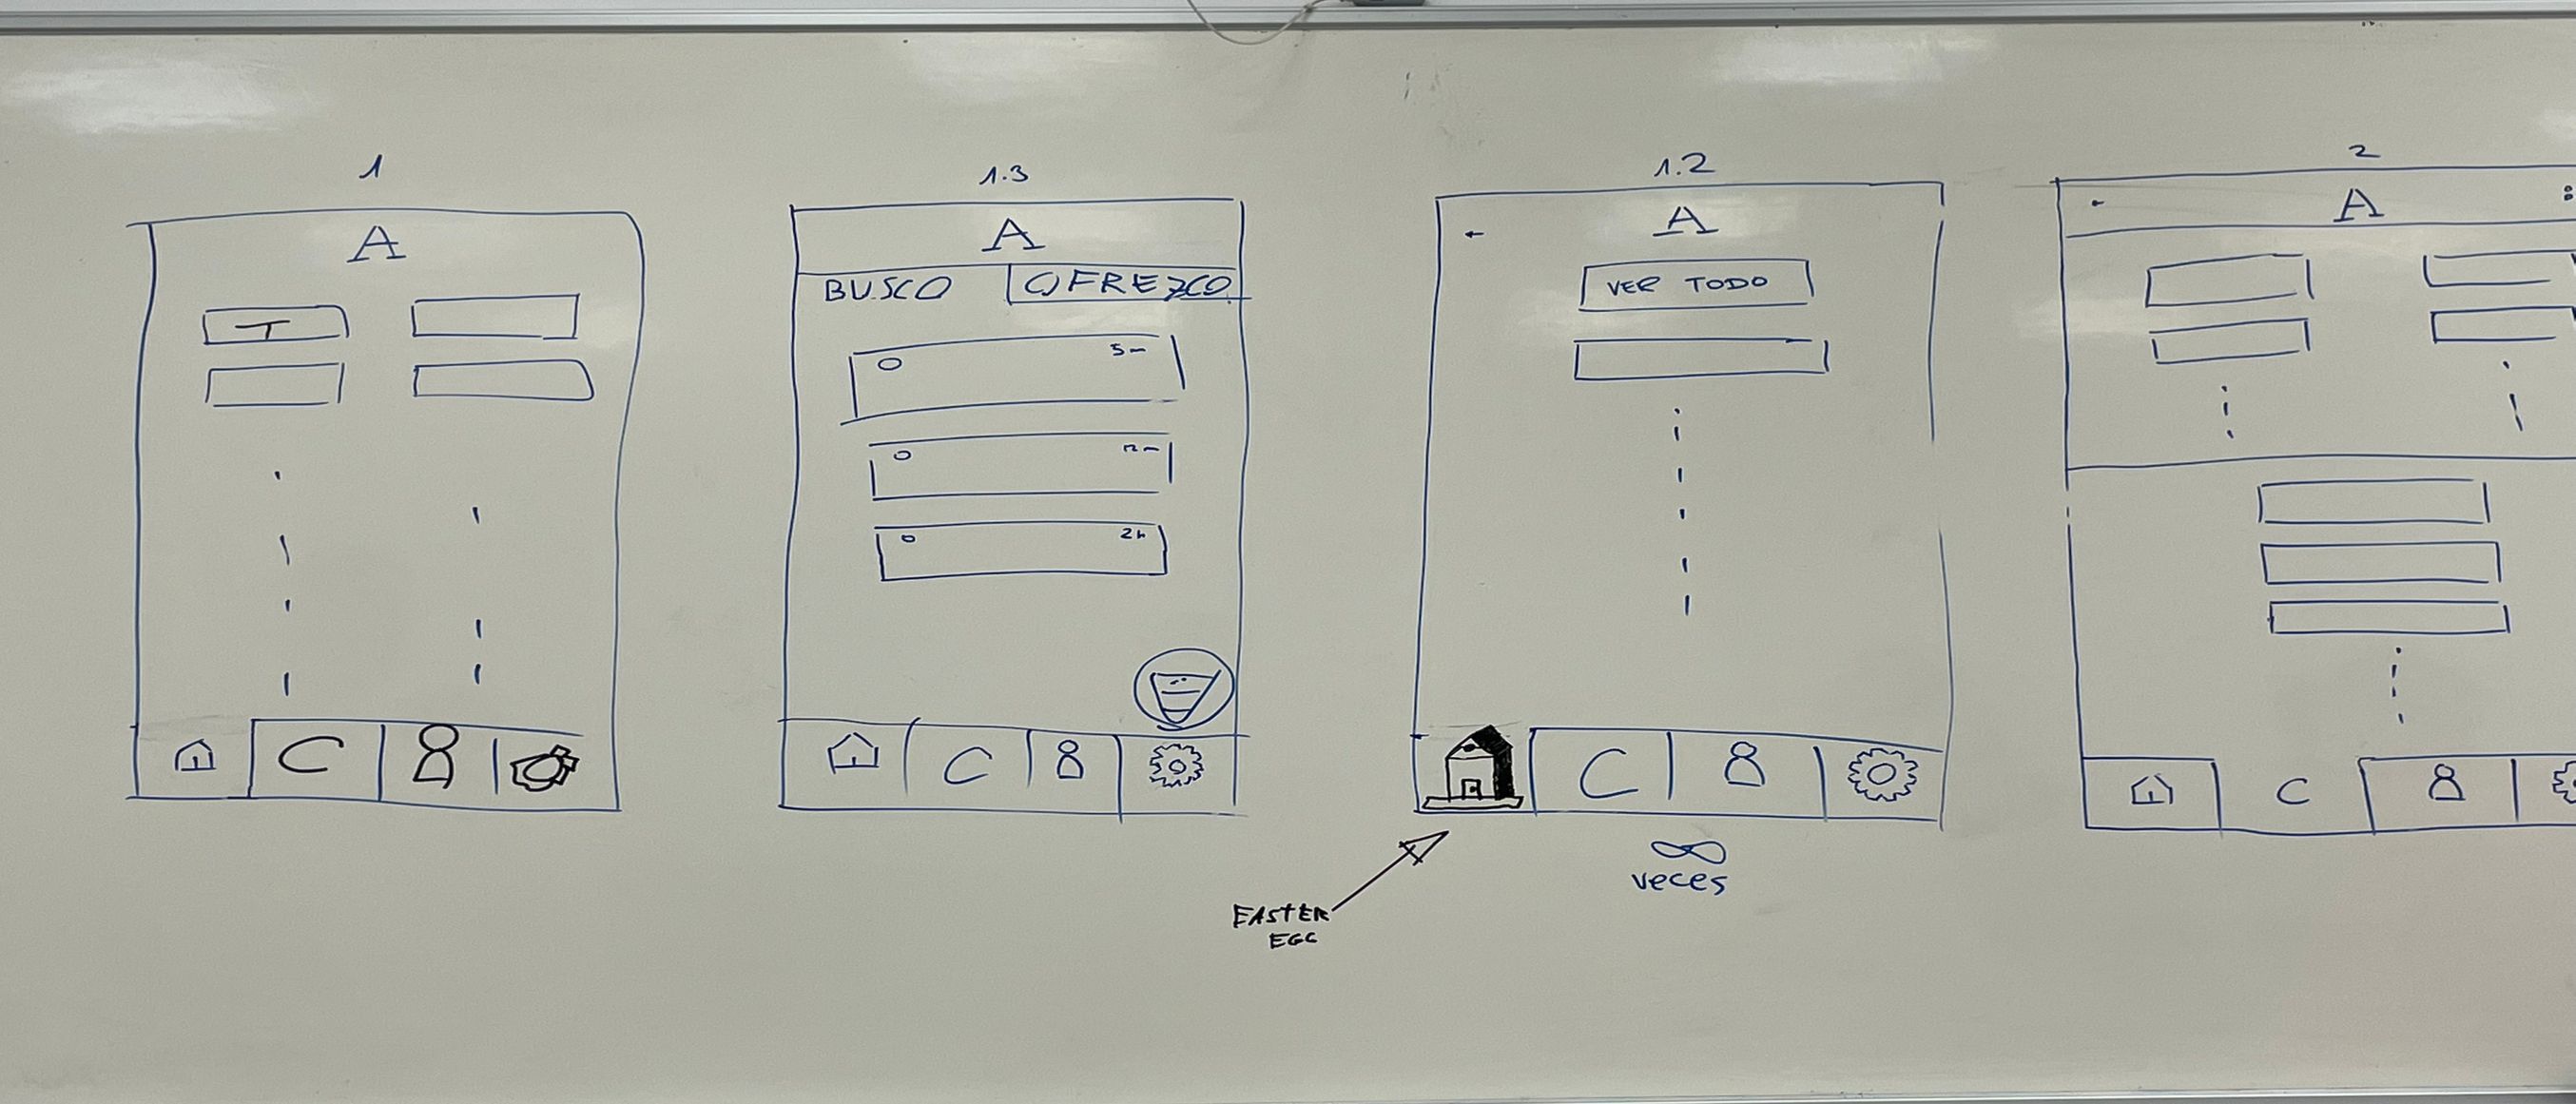 1
A
T
C
1.3
A
BUSCO
OFREZCO
5m
12m
2h
C
1.2
←
A
VER TODO
C
EASTER
EGG
∞
veces
2
←
A
C